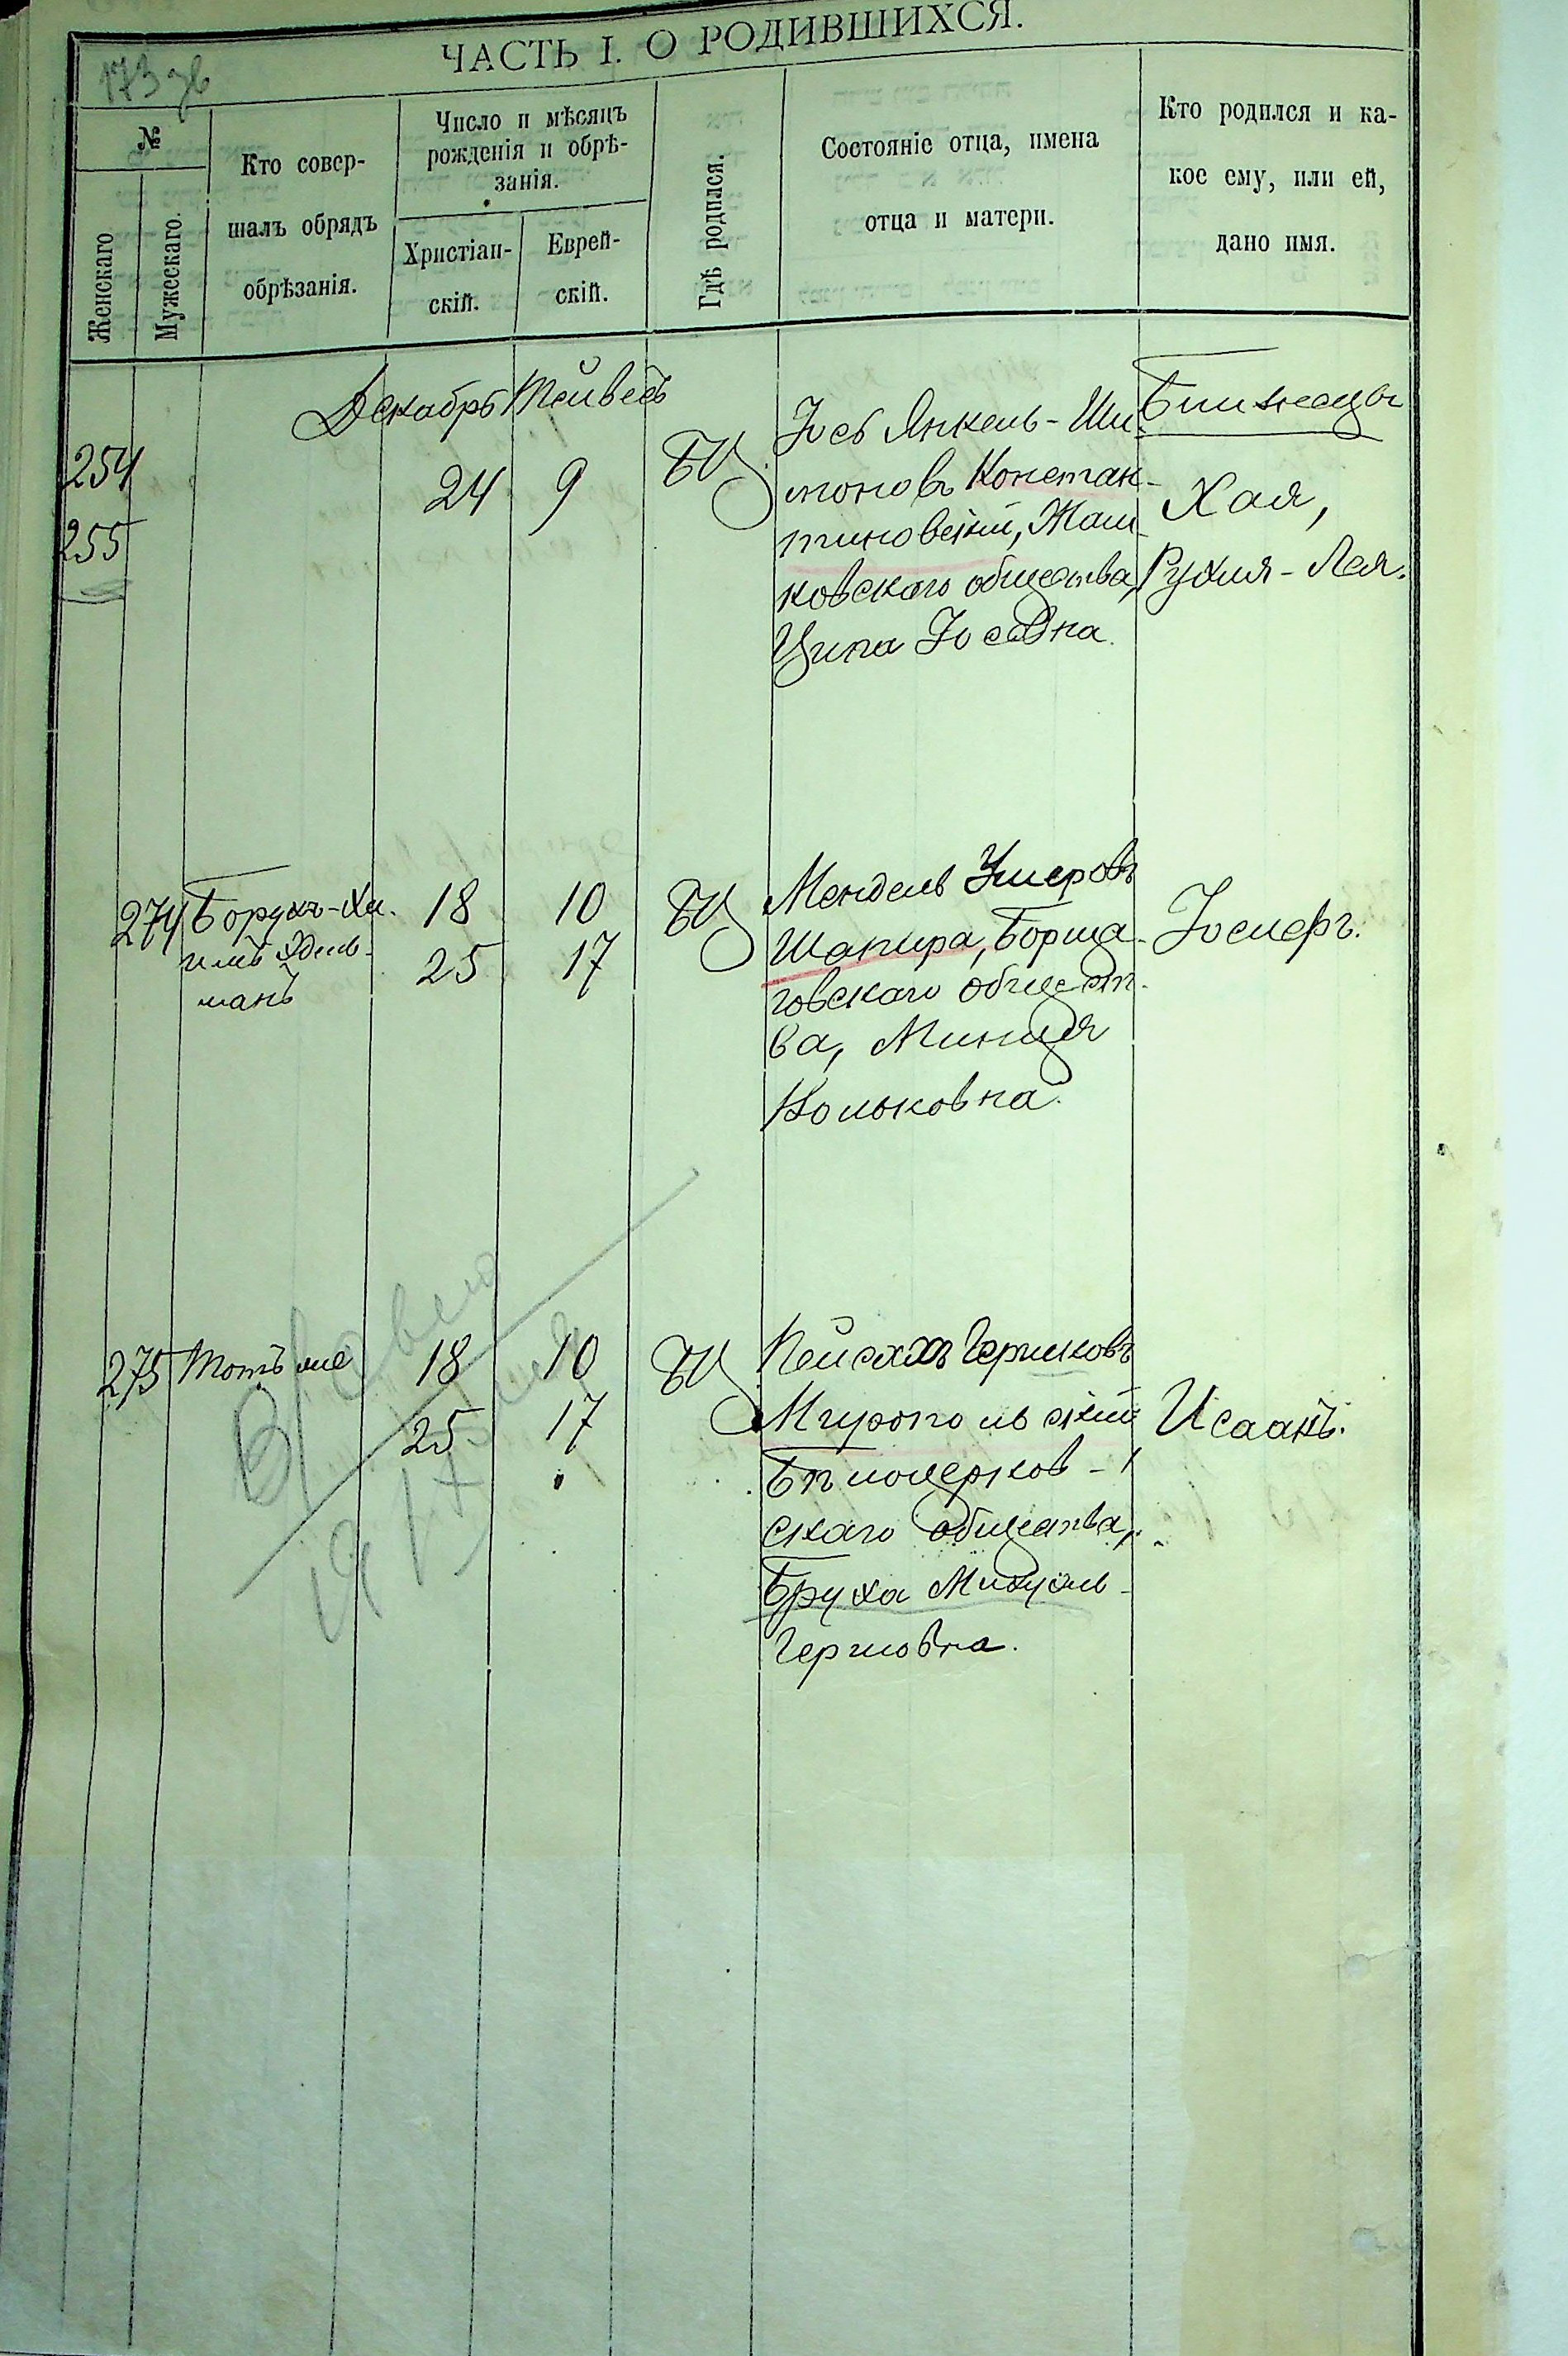 173 зв
ЧАСТЬ I. О РОДИВШИХСЯ.
№
Женскаго
Мужескаго.
Кто совер-
шалъ обрядъ
обрѣзанія.
Число и мѣсяцъ
рожденія и обрѣ-
занія.
Христіан-
скій.
Еврей-
скій.
Гдѣ родился.
Состояніе отца, имена
отца и матери.
Кто родился и ка-
кое ему, или ей,
дано имя.
Декабрь Тейвесъ
254
255
24 9 БЦ
Іось Янкель-Ши-
моновъ Констан-
тиновскій,
ковскаго общества,
Ципа Іосевна.
Близнецы
Хая,
Рухля-Лея.
274 Борухъ-Ха-
имъ Эдель-
манъ
18 10 БЦ
25 17
Мендель Ушеровъ
Шапира, Борща-
говскаго общест-
ва, Минця
Вольковна.
Іосифъ.
275 Тотъ же
18 10 БЦ
25 17
Пейсахъ Гершковъ
Миропольскій
Бѣлоцерков-
скаго общества,
Бруха Михель-
Гершовна.
Исаакъ.